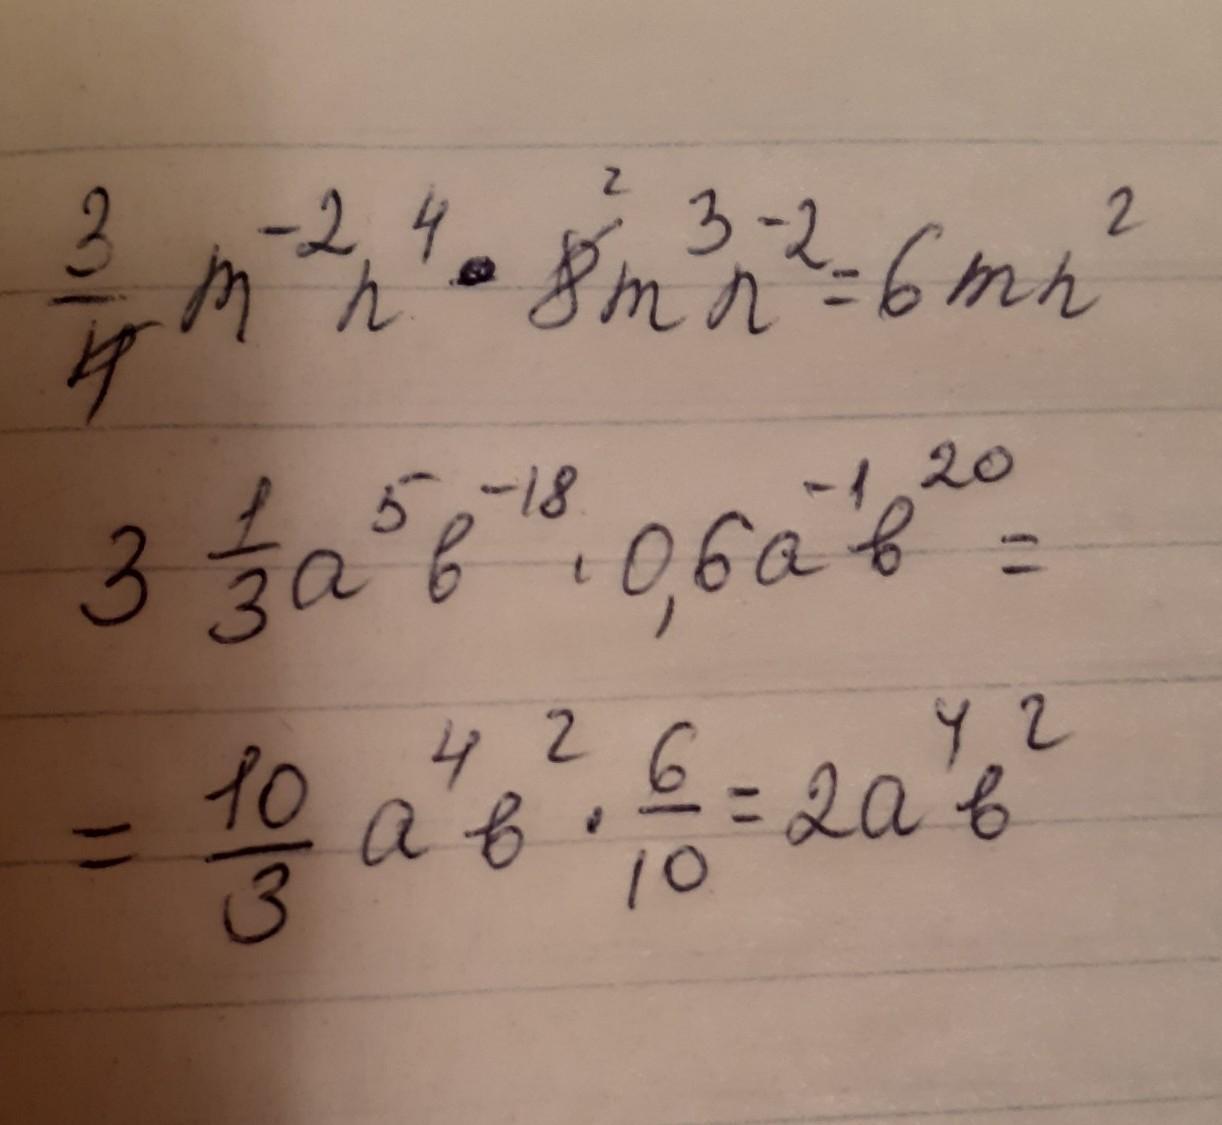 3/4 m⁻²n⁴ • 8²m³n⁻² = 6mn²
3 1/3 a⁵b⁻¹⁸ · 0,6a⁻¹b²⁰ =
= 10/3 a⁴b² · 6/10 = 2a⁴b²